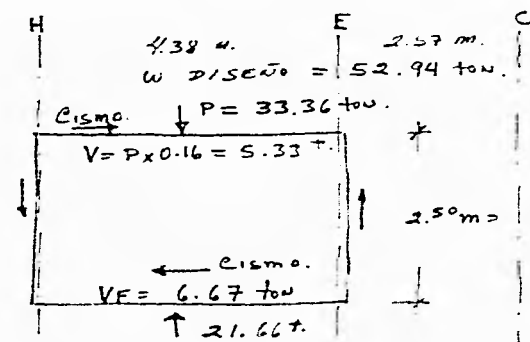 H E C
4.38 m. 2.57 m.
W DISEÑO = 52.94 ton.
Cismo. P = 33.36 ton.
V = P x 0.16 = 5.33 t.
2.50 m =
Cismo.
VF = 6.67 ton
21.66 t.